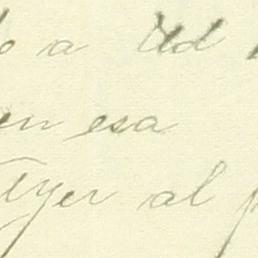 a Ud
en esa
Ayer al